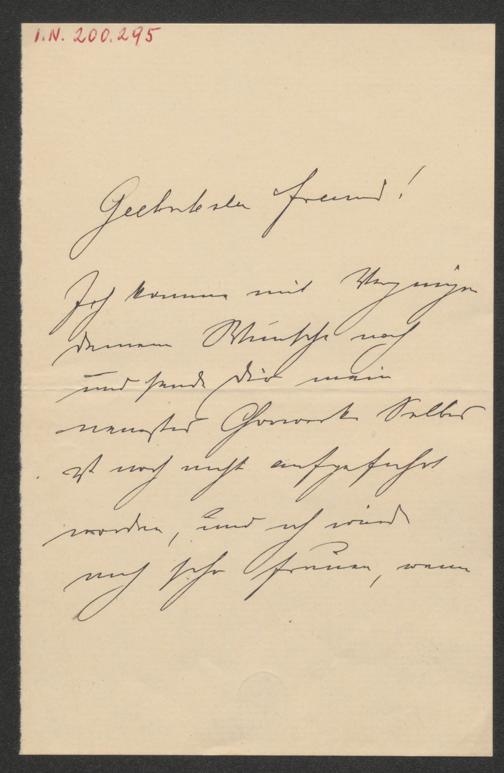 I.N. 200.295
Geehrtester Freund!
Ich komme mit Vergnügen
deinem Wunsche nach
und sende dir mein
neuestes Chorwerk. Selbes
ist noch nicht aufgeführt
worden, und ich würde
mich sehr freuen, wenn